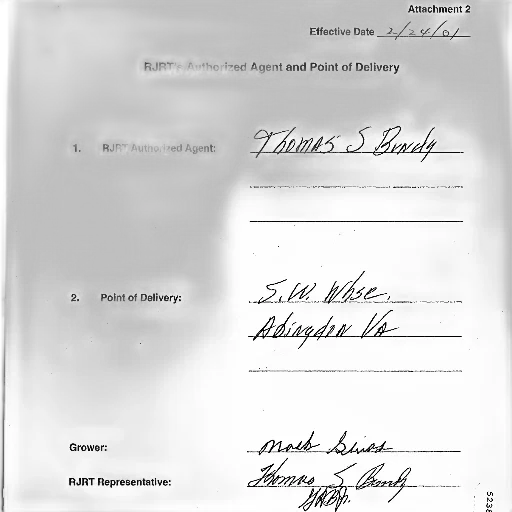 Attachment 2
Effective Date 2/24/01
RJRT's Authorized Agent and Point of Delivery
1. RJRT Authorized Agent: Thomas S Bundy
2. Point of Delivery: S.W. Whse.
Abingdon Va
Grower:
RJRT Representative: Thomas S Bundy
5238